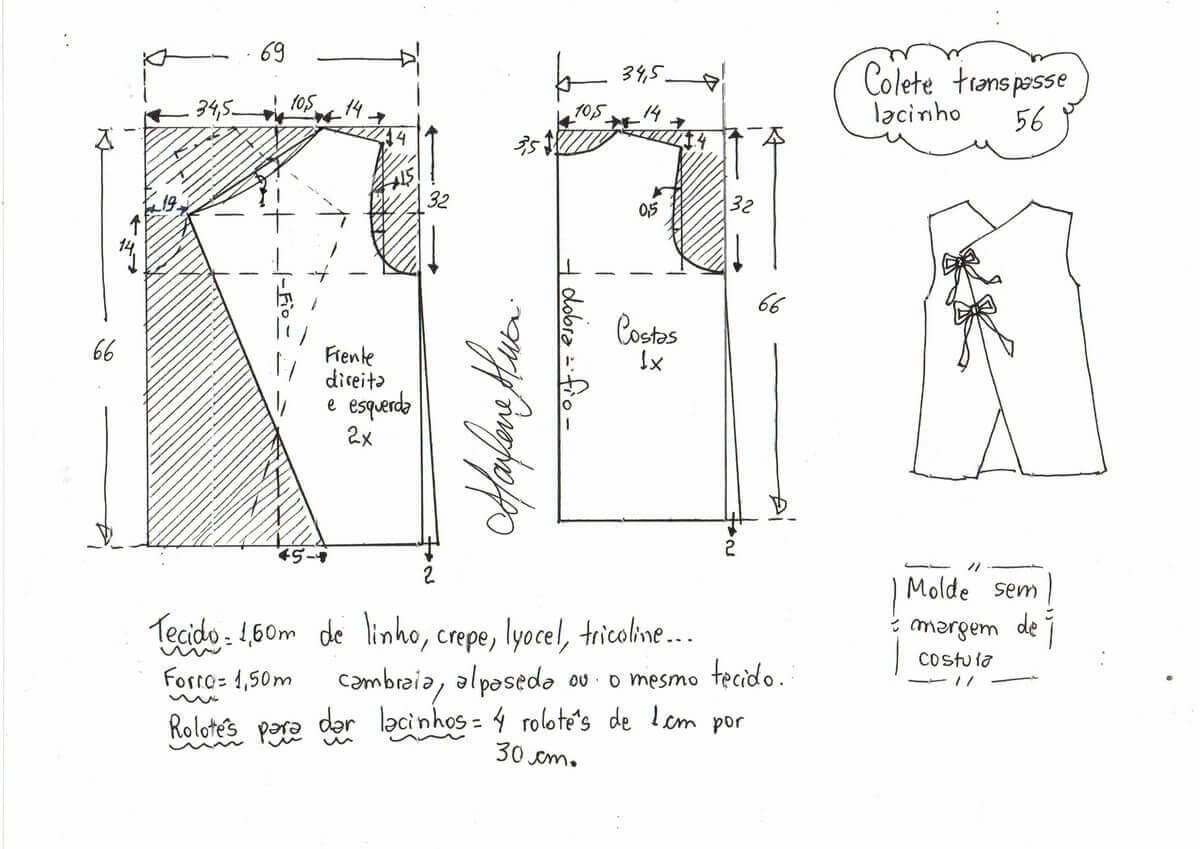 69
34,5
10,5
14
4
1
15
32
19
14
66
-Fio-
Frente
direita
e esquerda
2x
5
2
34,5
10,5
14
3,5
4
0,5
32
66
- dobra = fio -
Costas
1x
2
Colete transpasse
lacinho 56
Marlene Mukai
Molde sem
margem de
costura
Tecido = 1,60m de linho, crepe, lyocel, tricoline...
Forro = 1,50m cambraia, alpaseda ou o mesmo tecido.
Rolotês para dar lacinhos = 4 rolotês de 1cm por
30 cm.